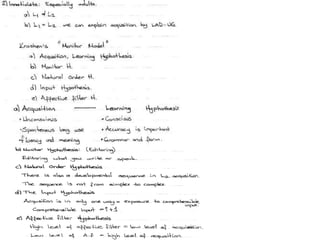 2) Innatists: Especially adults.
a) L1 ≠ L2
b) L1 = L2 we can explain acquisition by LAD-UG.
Krashen's "Monitor Model"
a) Acquisition, Learning Hyphothesis
b) Monitor H.
c) Natural Order H.
d) Input Hyphothesis.
e) Affective Filter H.
a) Acquisition ——— Learning Hyphothesis
• Unconscious • Conscious
• Spontaneous lang use • Accuracy is important
• fluency and meaning • Grammar and form.
b) Monitor Hyphothesis: (Editoring)
Editoring what you write or speak.
c) Natural Order Hyphothesis
There is also a developmental sequence in L2 acquisition
The sequence is not from simple to complex
d) The Input Hyphothesis
Acquisition is in only one way = exposure to comprehensible input
Comprehensible input = i + 1
e) Affective Filter Hyphothesis
High level of affective filter = low level of acquisition.
Low level of A.F = high level of acquisition.